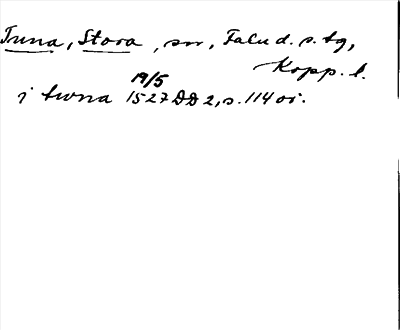 Tuna, Stora, sn, Falu d. s. tg,
Kopp. l.
19/5
i twna 1527 DD 2, s. 114 or.